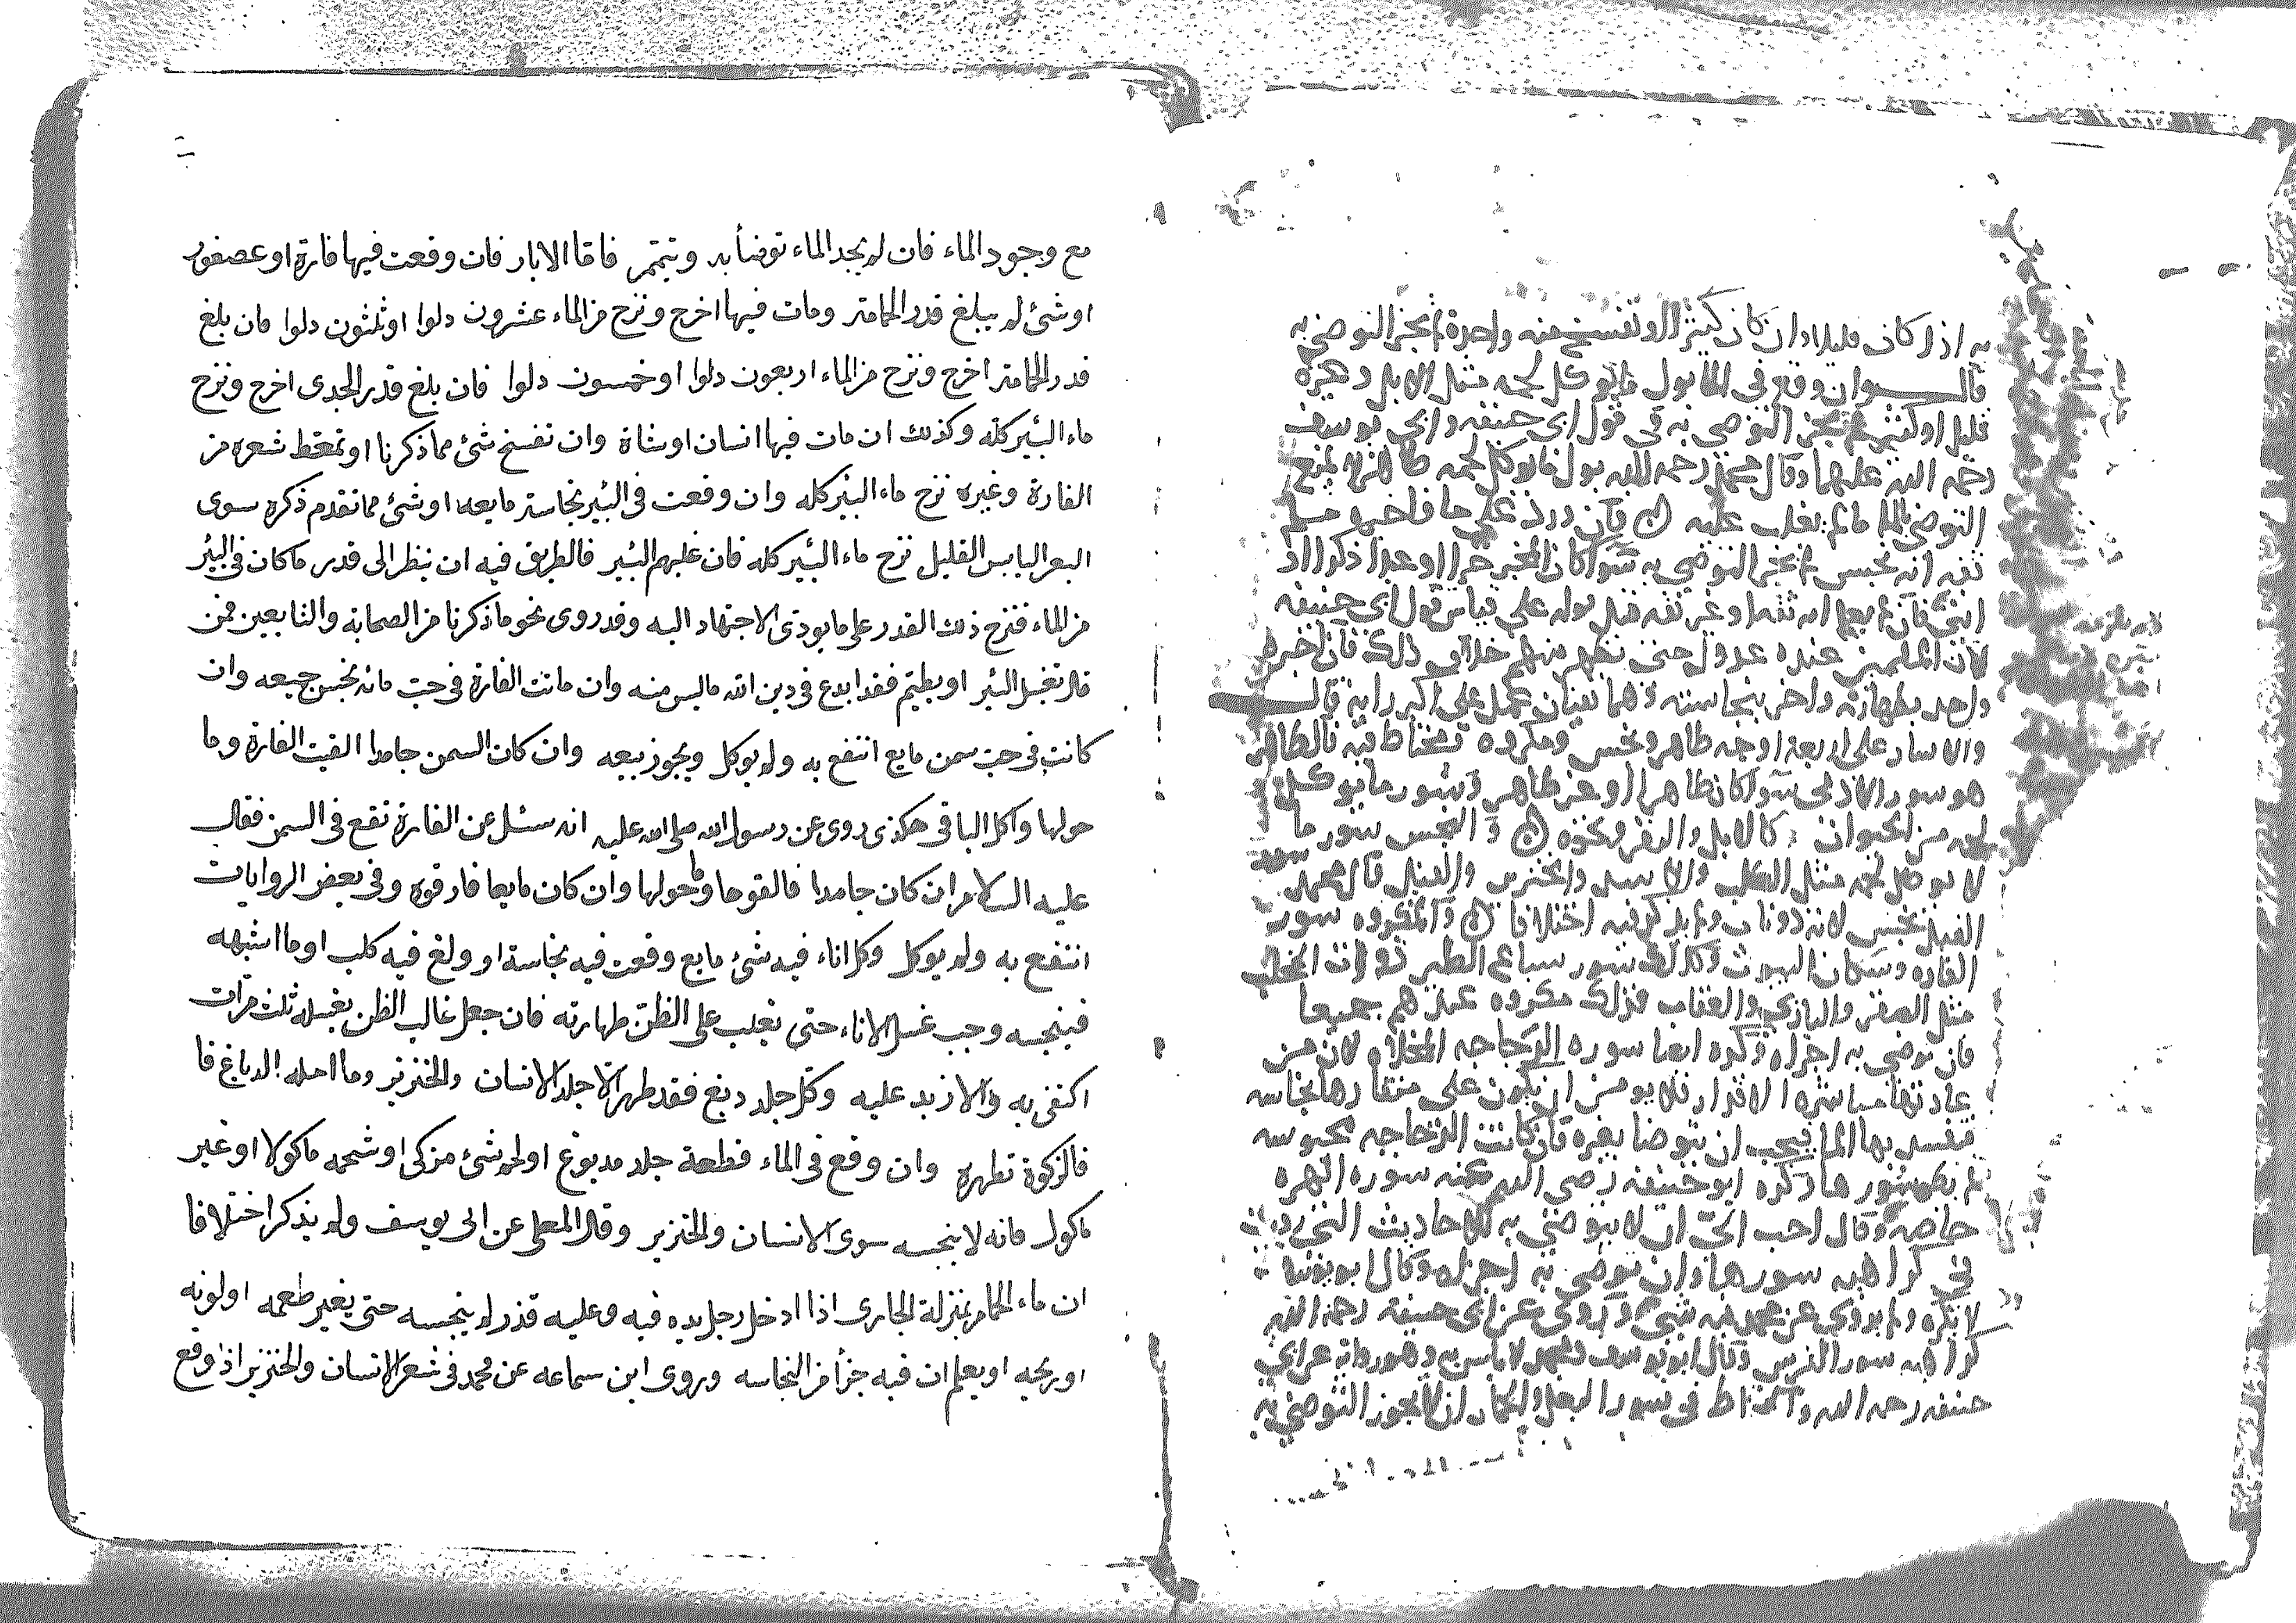 به اذا كان قليلا وان كان كثيرا لو تفسخ منه واحدة لم يجز التوضي به
قال وان وقع في الما بول ما يوكل لحمه مثل الابل وغيره
قليل او كثير لم يجز التوضي به في قول ابي حنيفه وابي يوسف
رحمه الله عليهما وقال محمد رحمه الله بول ما يوكل لحمه طاهر لا يمنع
التوضي بالما ما لم يغلب عليه فان ورد على ما فاخبره مسلم
ثقه انه نجس لم يجز التوضي به سوا كان المخبر حرا او عبدا ذكرا او
انثى فان لم يعلم انه ثقه او غير ثقه قبل قوله على قياس قول ابي حنيفه
لان المسلمين عنده عدول حتى تظهر منهم خلاف ذلك فان اخبره
واحد بطهارته واخر بنجاسته وهما ثقتان عمل على اكبر رايه قال
والاسار على اربعة اوجه طاهر ونجس ومكروه ومحتاط فيه فالطاهر
هو سور الادمي سوا كان طاهرا او غير طاهر وسور ما يوكل
لحمه من الحيوان كالابل والبقر ونحوه والنجس سور ما
لا يوكل لحمه مثل الكلب والاسد والخنزير والفيل قال محمد سور
الفيل نجس لانه ذو ناب ولم يذكر فيه اختلافا والمكروه سور
الفاره وسكان البيوت وكذلك سور سباع الطير ذوات المخلب
مثل الصقر والبازي والعقاب فذلك مكروه عندهم جميعا
فان توضي به اجزاه وكره ايضا سوره الدجاجه المخلاه لان من
عادتها مباشره الاقذار فلا يومن ان يكون على منقارها نجاسه
فيفسد بها الما فيجب ان يتوضا بغيره فان كانت الدجاجه محبوسه
لم يكره سورها وكره ابو حنيفه رضي الله عنه سوره الهره
خاصه وقال احب الي ان لا يتوضي به للاحاديث التي رويت
في كراهيه سورها وان توضي به اجزاه وقال ابو يوسف
لا يكره ولم يروي عن محمد فيه شي وروي عن ابي حنيفه رحمه الله
كراهيه سور الفرس وقال ابو يوسف ومحمد لا باس به وهو روايه عن ابي
حنيفه رحمه الله والمحتاط في سور البغل والحمار ان لا يجوز التوضي به
مع وجود الماء فان لم يجد الماء توضأ به وتيمم فاما الابار فان وقعت فيها فارة او عصفور
او شئ لم يبلغ قدر الحمامة ومات فيها اخرج ونزح من الماء عشرون دلوا او ثلثون دلوا فان بلغ
قدر الحمامة اخرج ونزح من الماء اربعون دلوا او خمسون دلوا فان بلغ قدر الجدى اخرج ونزح
ماء البئير كله وكذلك ان مات فيها انسان او شاة وان تفسخ شئ مما ذكرنا او تمعط شعره من
الفارة وغيره نزح ماء البئير كله وان وقعت فى البئير نجاسة مايعه او شئ مما تقدم ذكره سوى
البعر اليابس القليل نزح ماء البئير كله فان غلبهم البئير فالطريق فيه ان ينظر الى قدر ما كان فى البئر
من الماء فنزح ذلك القدر على ما يودى الاجتهاد اليه وقد روى نحو ما ذكرنا من الصحابة والتابعين فمن
قال تغسل البئر او يطيم فقد ابدع فى دين الله ما ليس منه وان ماتت الفارة فى حب مائه نجس جميعه وان
كانت فى حب سمن مايع انتفع به ولم يوكل ويجوز بيعه وان كان السمن جامدا القيت الفارة وما
حولها واكل الباقى هكذى روى عن رسول الله صلى الله عليه انه سئل عن الفارة تقع فى السمن فقال
عليه السلام ان كان جامدا فالقوها وما حولها وان كان مايعا فارقوه وفى بعض الروايات
انتفع به ولم يوكل وكل اناء فيه شئ مايع وقعت فيه نجاسة او ولغ فيه كلب او ما اشبهه
فينجسه وجب غسل الاناء حتى يغلب على الظن طهارته فان جعل غالب الظن بغسله ثلث مرات
اكتفى به والا زيد عليه وكل جلد دبغ فقد طهر الا جلد الانسان والخنزير وما احله الدباغ فا
فالزكوة تطهره وان وقع فى الماء قطعة جلد مدبوغ او لحم شئ مزكى او شحمه ماكولا او غير
ماكول فانه لا ينجسه سوى الانسان والخنزير وقال المعلى عن ابى يوسف ولم يذكر اختلافا
ان ماء الحمام بمنزلة الجارى اذا ادخل رجل يده فيه وعليه قذر لم ينجسه حتى يغير طعمه او لونه
او ريحه او يعلم ان فيه جزأ من النجاسه وروى ابن سماعه عن محمد فى شعر الانسان والخنزير اذا وقع